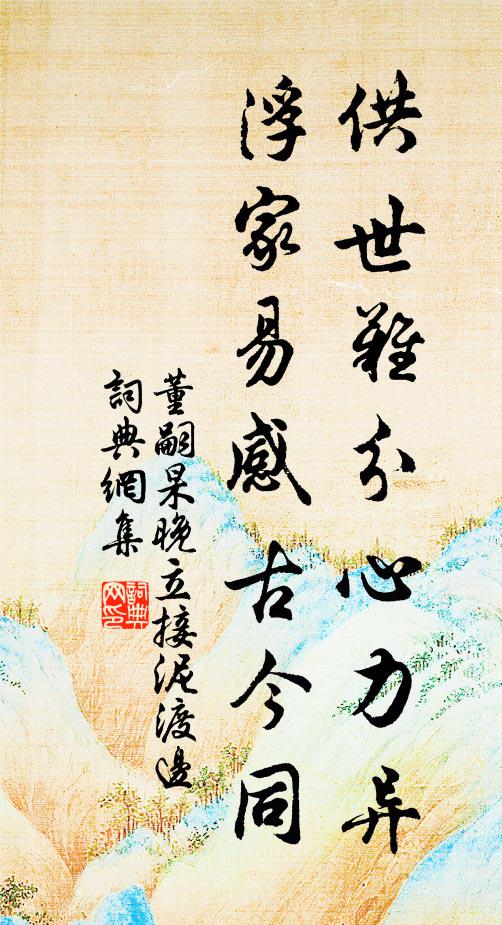 供世難分心力异
浮家易感古今同
董嗣杲晚立接泥渡邊
詞典網集
詞典網印